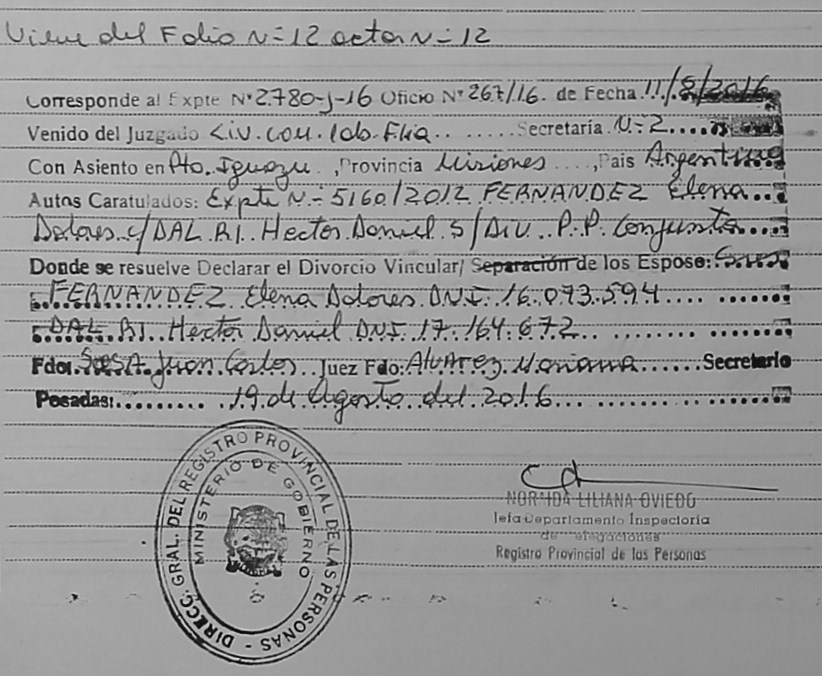 Viene del Folio N=12 acta N=12
Corresponde al Expte N° 2.780-J-16 Oficio N° 267/16. de Fecha 11/8/2016
Venido del Juzgado Civ. Com. Lab. Flia........ Secretaría N=2.....
Con Asiento en Pto. Iguazu ,Provincia Misiones ....,Pais Argentina
Autos Caratulados: Expte N=5160/2012 FERNANDEZ Elena...
Dolores c/DAL RI. Hector Daniel S/Div. P.P. Conjunta....
Donde se resuelve Declarar el Divorcio Vincular/ Separación de los Esposo:
FERNANDEZ Elena Dolores D.N.I. 16.073.594
DAL RI Hector Daniel DNI 17.164.672
Fdo. SosA Juan Carlos Juez Fdo: Alvarez Mariana......Secretario
Posadas:......... 19 de Agosto del 2016
DIRECC. GRAL. DEL REGISTRO PROVINCIAL DE LAS PERSONAS -
MINISTERIO DE GOBIERNO
NORMIDA LILIANA OVIEDO
Jefa Departamento Inspectoria
de elegaciones
Registro Provincial de las Personas